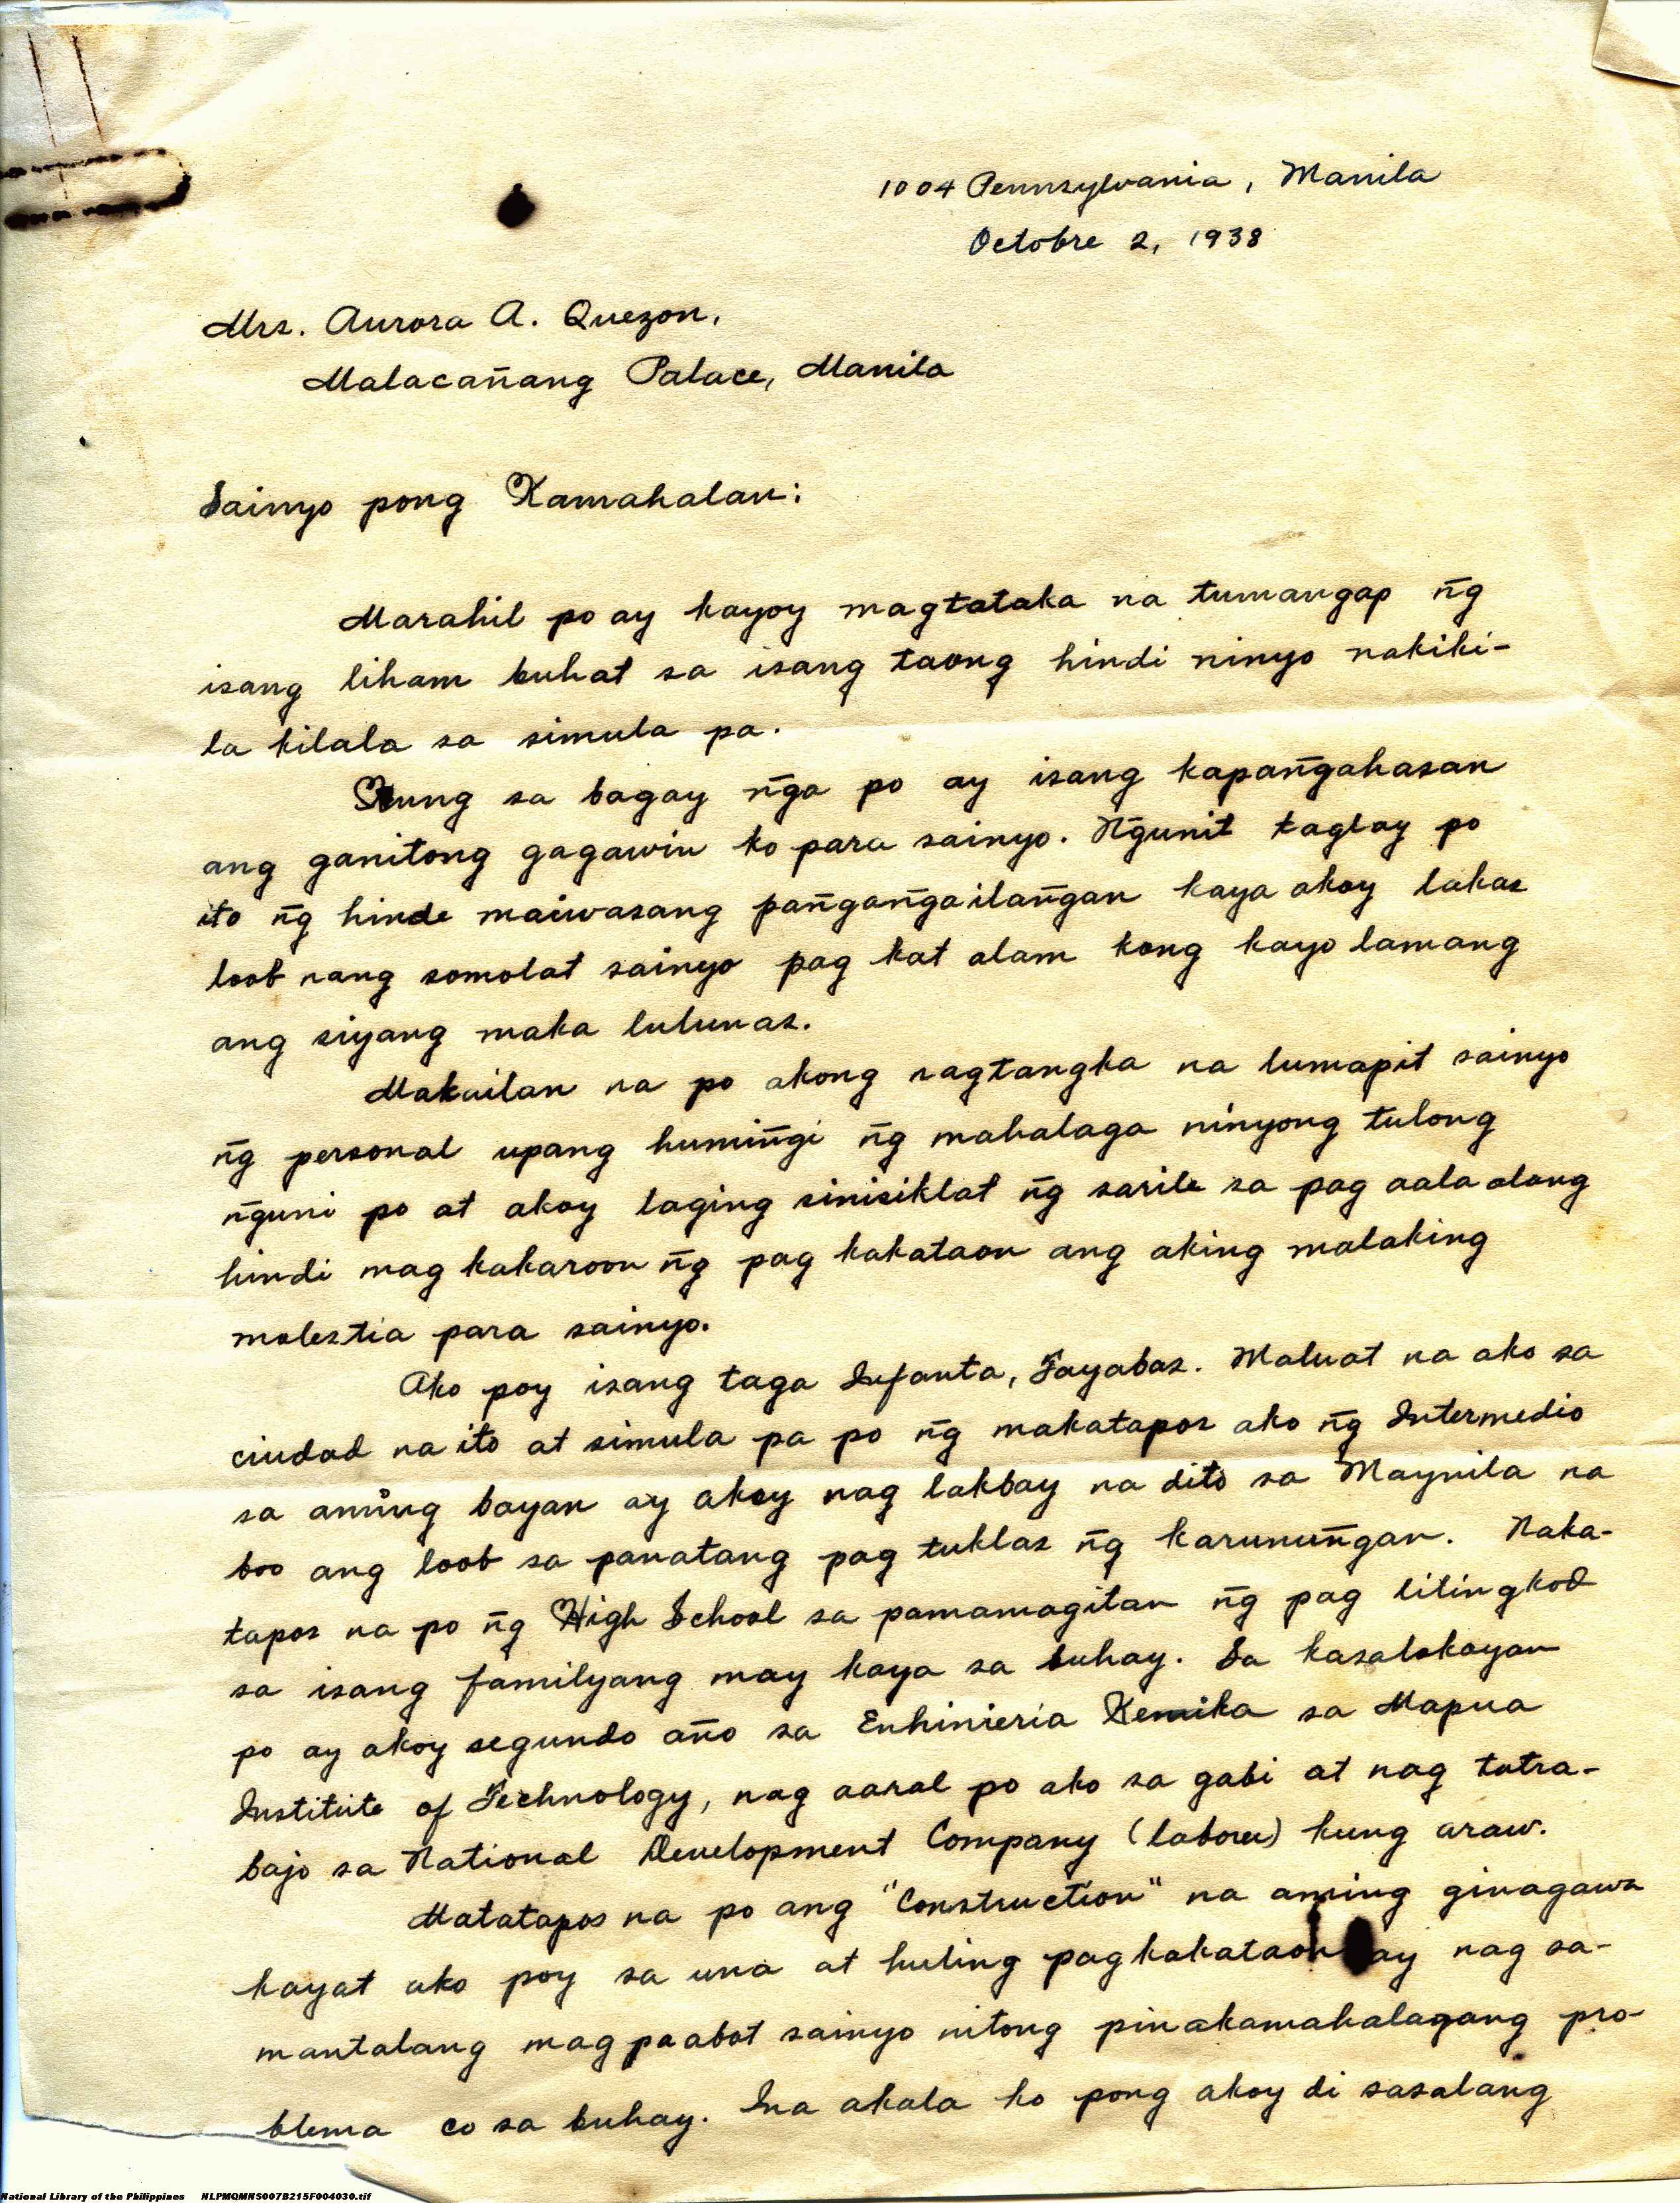 1004 Pennsylvania, Manila
Octobre 2, 1938
Mrs. Aurora A. Quezon,
Malacañang Palace, Manila
Sainyo pong Kamahalan:
Marahil po ay kayoy magtataka na tumangap n̄g
isang liham buhat sa isang taong hindi ninyo nakiki-
la kilala sa simula pa.
Kung sa bagay n̄ga po ay isang kapan̄gahasan
ang ganitong gagawin ko para sainyo. N̄gunit taglay po
ito n̄g hinde maiwasang pan̄gan̄gailan̄gan kaya akoy lakas
loob nang somolat sainyo pag kat alam kong kayo lamang
ang siyang maka lulunas.
Makailan na po akong nagtangka na lumapit sainyo
n̄g personal upang humin̄gi n̄g mahalaga ninyong tulong
n̄guni po at akoy laging sinisiklat n̄g sarile sa pag aala alang
hindi mag kakaroon n̄g pag kakataon ang aking malaking
molestia para sainyo.
Ako poy isang taga Infanta, Tayabas. Maluat na ako sa
ciudad na ito at simula pa po n̄g makatapos ako n̄g Intermedio
sa aming bayan ay akoy nag lakbay na dito sa Maynila na
boo ang loob sa panatang pag tuklas n̄g karunun̄gan. Naka-
tapos na po n̄g High School sa pamamagitan n̄g pag lilingkod
sa isang familyang may kaya sa buhay. Sa kasalokoyan
po ay akoy segundo año sa Enhinieria Kemika sa Mapua
Institute of Technology, nag aaral po ako sa gabi at nag tatra-
bajo sa National Development Company (laborer) kung araw.
Matatapos na po ang "Construction" na aming ginagawa
kayat ako poy sa una at huling pagkakataon ay nag sa-
mantalang mag paabot sainyo nitong pinakamahalagang pro-
blema co sa buhay. Ina akala ko pong akoy di sasalang
National Library of the Philippines NLPMQMNS007B215F004030.tif